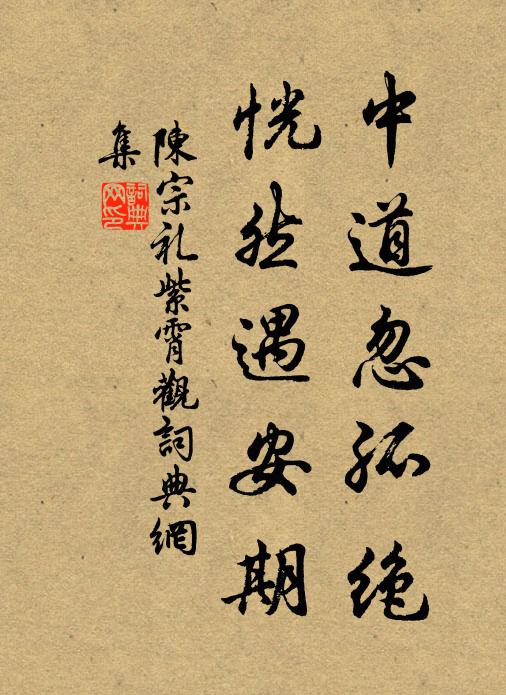 中道忽孤絶
恍然遇安期
陳宗礼紫霄觀詞典網
集
詞典网印